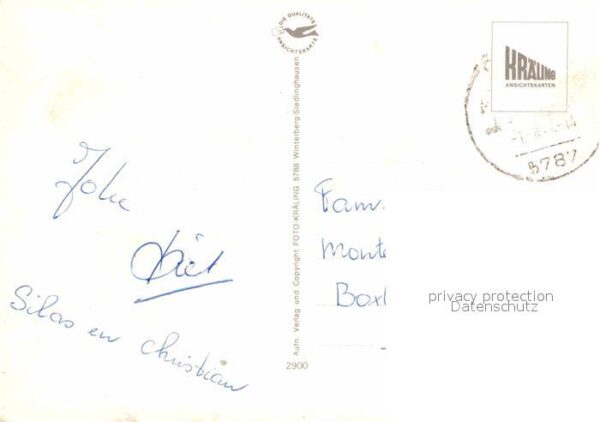 DIE QUALITÄTS
ANSICHTSKARTE
KRÄLING
ANSICHTSKARTEN
5787
Joke
Silas en christian
Aufn. Verlag und Copyright FOTO-KRÄLING 5788 Winterberg-Siedlinghausen
2900
Fam.
Monte
Boxt
privacy protection
Datenschutz